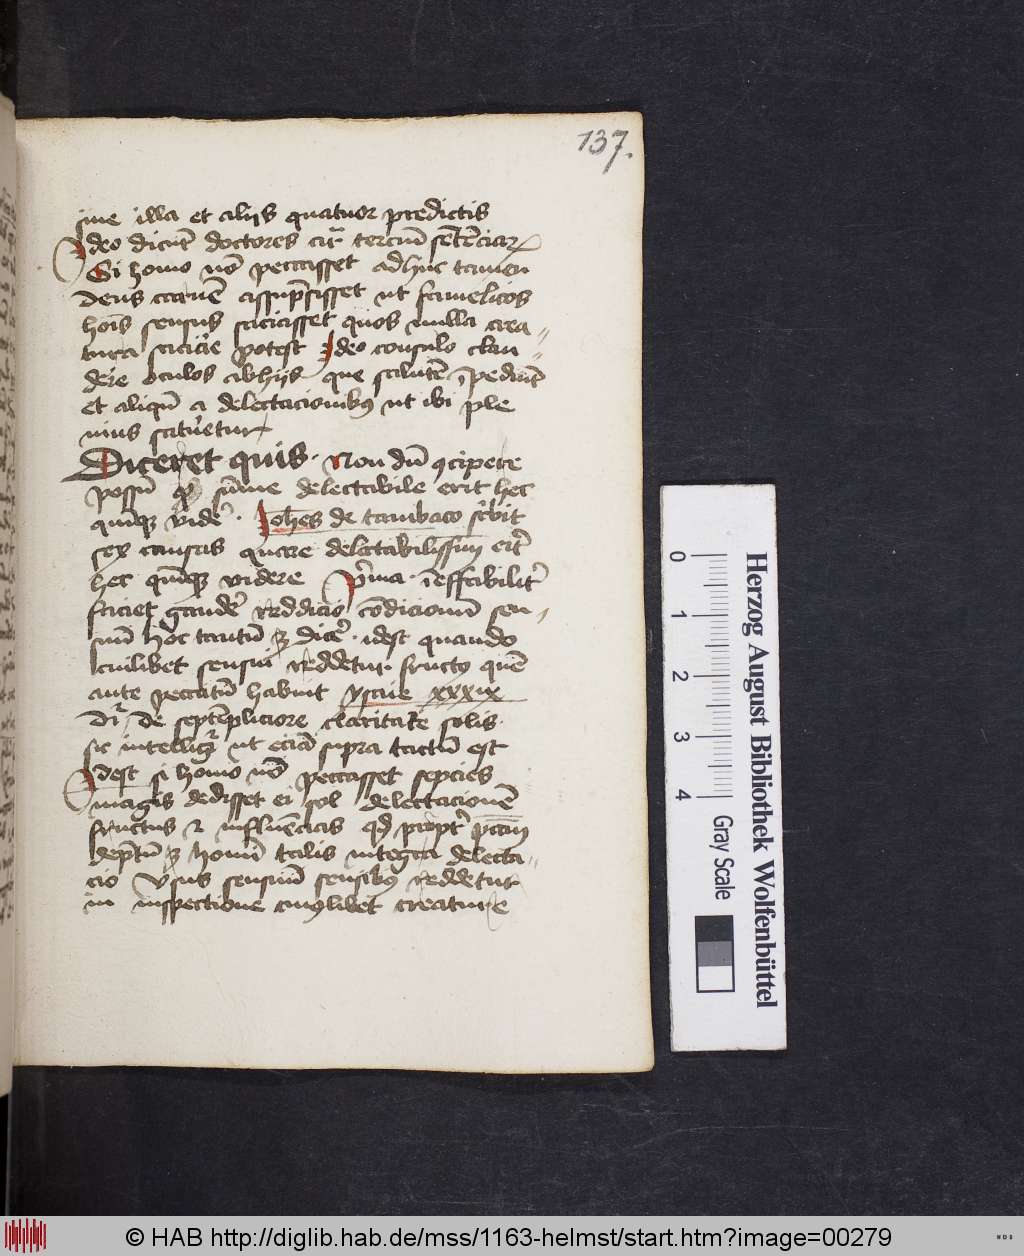 137.
sine illa et aliis quatuor predictis
Ideo dicunt doctores circa tercium sententiarum
Si homo non peccasset adhuc tamen
deus carnem assumpsisset ut famelicos
hominis sensus saciasset quos nulla crea-
tura saciare potest Ideo consulo clau-
dere oculos ab hijs que salutem impediunt
et aliquando a delectacionibus ut ibi ple
nius saturetur
Diceret quis. Non dum concipere
possum quod summe delectabile erit hec
quinque videre. Johannes de tambaco scribit
sex causas quare delectabilissimum erit
hec quinque videre Prima. ineffabiliter
faciet gaudere reddicio condicionum sen-
suum hoc tantum est dicere. idest quando
cuilibet sensui reddetur fructus quem
ante peccatum habuit ysaie xxxix
dicitur de septempliciore claritate solis.
sic intelligitur ut eciam supra tactum est
Idest si homo non peccasset sepcies
magis dedisset ei sol delectacionem
fructus et influencias quod propter peccatum
deperditum est homini talis integra delecta-
cio Usus sensuum sensibus reddetur
in inspectione cuiuslibet creature
0 1 2 3 4
Gray Scale
Herzog August Bibliothek Wolfenbüttel
© HAB http://diglib.hab.de/mss/1163-helmst/start.htm?image=00279